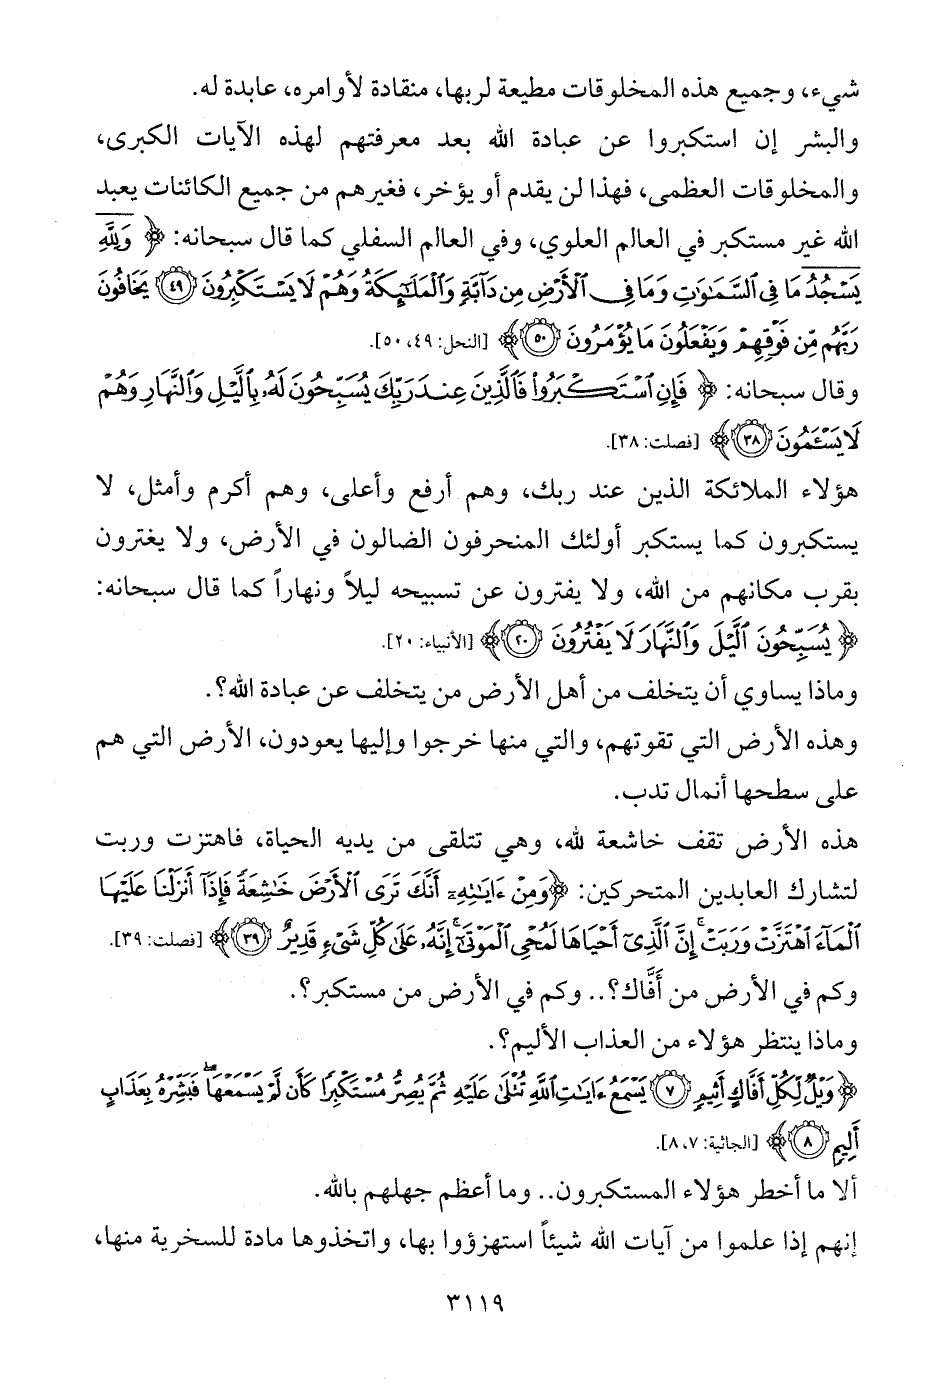 شيء، وجميع هذه المخلوقات مطيعة لربها، منقادة لأوامره، عابدة له.
والبشر إن استكبروا عن عبادة الله بعد معرفتهم لهذه الآيات الكبرى،
والمخلوقات العظمى، فهذا لن يقدم أو يؤخر، فغيرهم من جميع الكائنات يعبد
الله غير مستكبر في العالم العلوي، وفي العالم السفلي كما قال سبحانه: ﴿ وَلِلَّهِ
يَسْجُدُ مَا فِي السَّمَٰوَٰتِ وَمَا فِي الْأَرْضِ مِن دَآبَّةٍ وَالْمَلَٰٓئِكَةُ وَهُمْ لَا يَسْتَكْبِرُونَ ٤٩ يَخَافُونَ
رَبَّهُم مِّن فَوْقِهِمْ وَيَفْعَلُونَ مَا يُؤْمَرُونَ ٥٠ ﴾ [النحل: ٤٩، ٥٠].
وقال سبحانه: ﴿ فَإِنِ اسْتَكْبَرُوا فَالَّذِينَ عِندَ رَبِّكَ يُسَبِّحُونَ لَهُۥ بِالَّيْلِ وَالنَّهَارِ وَهُمْ
لَا يَسْـَٔمُونَ ٣٨ ﴾ [فصلت: ٣٨].
هؤلاء الملائكة الذين عند ربك، وهم أرفع وأعلى، وهم أكرم وأمثل، لا
يستكبرون كما يستكبر أولئك المنحرفون الضالون في الأرض، ولا يغترون
بقرب مكانهم من الله، ولا يفترون عن تسبيحه ليلاً ونهاراً كما قال سبحانه:
﴿ يُسَبِّحُونَ الَّيْلَ وَالنَّهَارَ لَا يَفْتُرُونَ ٢٠ ﴾ [الأنبياء: ٢٠].
وماذا يساوي أن يتخلف من أهل الأرض من يتخلف عن عبادة الله؟.
وهذه الأرض التي تقوتهم، والتي منها خرجوا وإليها يعودون، الأرض التي هم
على سطحها أنمال تدب.
هذه الأرض تقف خاشعة لله، وهي تتلقى من يديه الحياة، فاهتزت وربت
لتشارك العابدين المتحركين: ﴿ وَمِنْ ءَايَٰتِهِۦٓ أَنَّكَ تَرَى الْأَرْضَ خَٰشِعَةً فَإِذَآ أَنزَلْنَا عَلَيْهَا
الْمَآءَ اهْتَزَّتْ وَرَبَتْ ۚ إِنَّ الَّذِيٓ أَحْيَاهَا لَمُحْيِ الْمَوْتَىٰٓ ۚ إِنَّهُۥ عَلَىٰ كُلِّ شَيْءٍ قَدِيرٌ ٣٩ ﴾ [فصلت: ٣٩].
وكم في الأرض من أَفَّاك؟.. وكم في الأرض من مستكبر؟.
وماذا ينتظر هؤلاء من العذاب الأليم؟.
﴿ وَيْلٌ لِّكُلِّ أَفَّاكٍ أَثِيمٍ ٧ يَسْمَعُ ءَايَٰتِ اللَّهِ تُتْلَىٰ عَلَيْهِ ثُمَّ يُصِرُّ مُسْتَكْبِرًا كَأَن لَّمْ يَسْمَعْهَا ۖ فَبَشِّرْهُ بِعَذَابٍ
أَلِيمٍ ٨ ﴾ [الجاثية: ٧، ٨].
ألا ما أخطر هؤلاء المستكبرون.. وما أعظم جهلهم بالله.
إنهم إذا علموا من آيات الله شيئاً استهزؤوا بها، واتخذوها مادة للسخرية منها،
٣١١٩